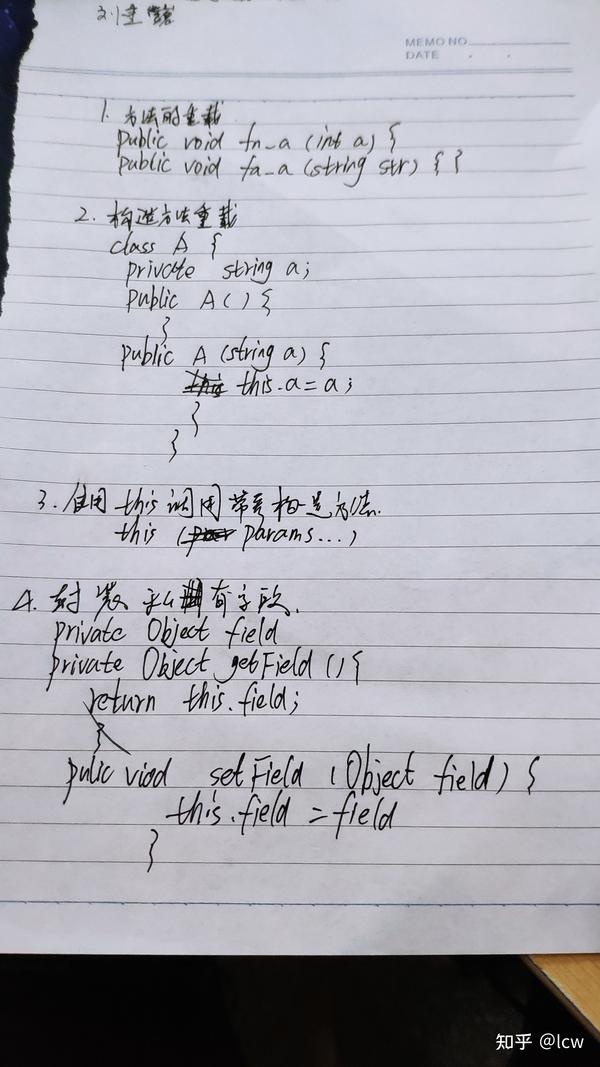 MEMO NO
DATE
1. 方法的重载
public void fn_a (int a) {
public void fa_a (string str) { }
2. 构造方法重载
class A {
private string a;
public A() {
}
public A (string a) {
this.a = a;
}
}
3. 使用 this 调用带参构造方法.
this (params...)
4. 封装私有字段.
private Object field
private Object getField () {
return this.field;
}
pulic viod setField (Object field) {
this.field = field
}
知乎 @lcw